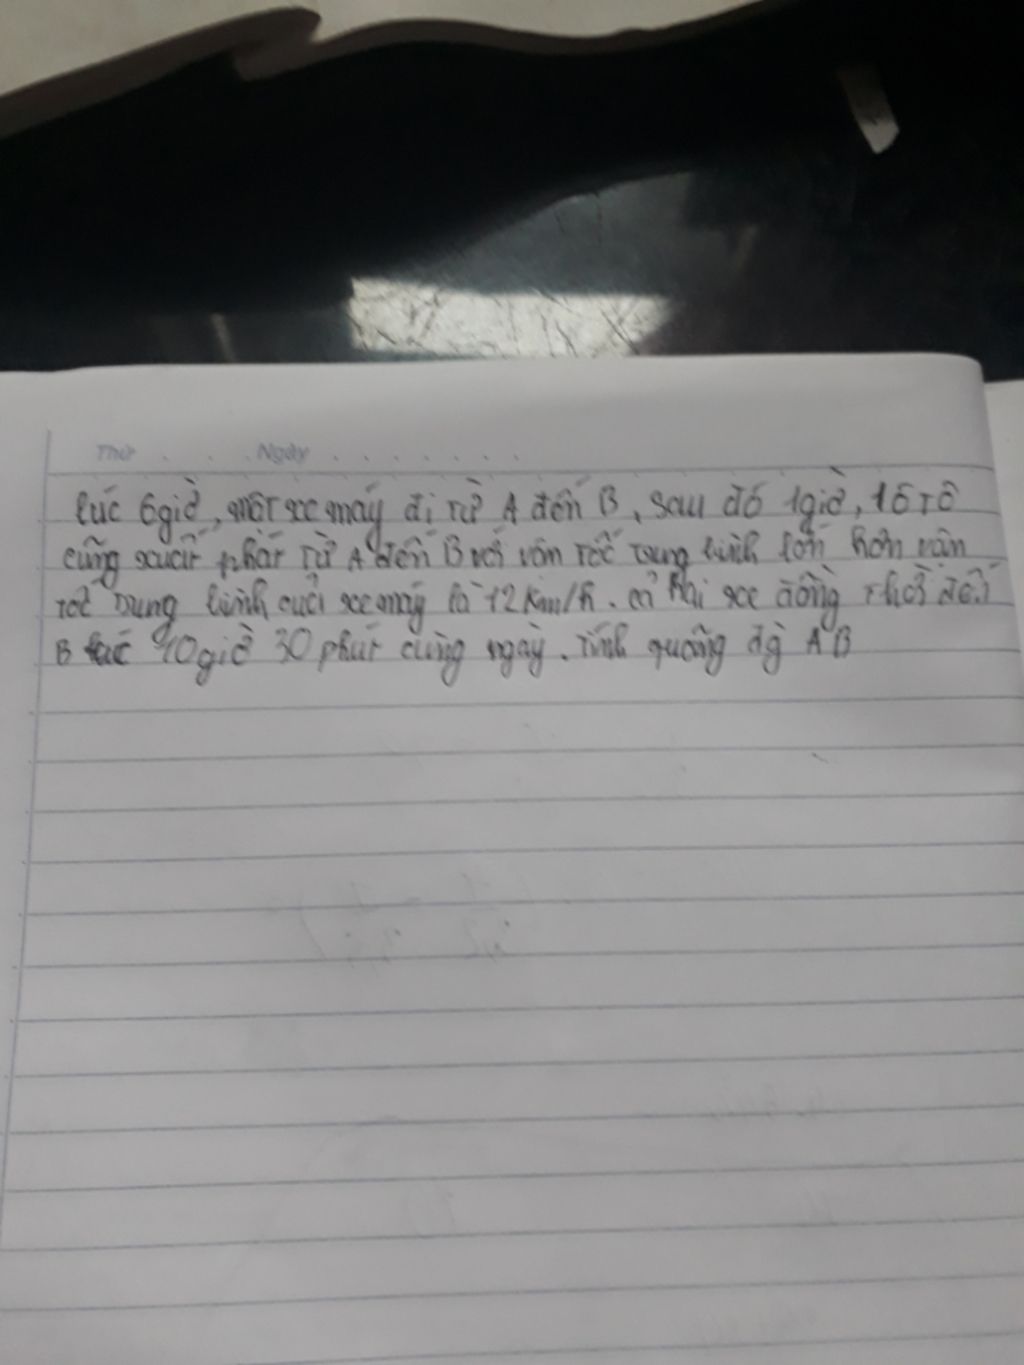 Thứ . . . Ngày . . . . . . .
lúc 6giờ, một xe máy đi từ A đến B, sau đó 1giờ, 1ô tô
cũng xuất phát từ A đến B với vận tốc trung bình lớn hơn vận
tốc trung bình của xe máy là 12km/h. cả hai xe đồng thời đến
B lúc 10giờ 30 phút cùng ngày. Tính quãng đg AB